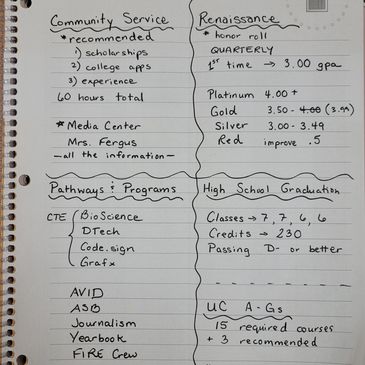 Community Service
*recommended
1) scholarships
2) college apps
3) experience
60 hours total
*Media Center
Mrs. Fergus
-all the information-
Renaissance
* honor roll
QUARTERLY
1st time → 3.00 gpa
Platinum 4.00 +
Gold 3.50 - 4.00 (3.99)
Silver 3.00 - 3.49
Red improve .5
Pathways & Programs
CTE { BioScience
DTech
Code.sign
Grafx
AVID
ASB
Journalism
Yearbook
FIRE Crew
High School Graduation
Classes → 7, 7, 6, 6
Credits → 230
Passing D- or better
UC A-Gs
15 required courses
+ 3 recommended